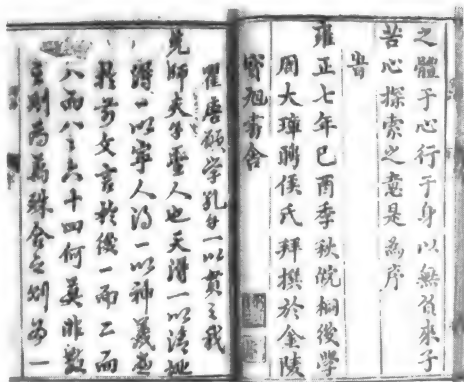 之體于心行于身以無負來子
苦心探索之意是為序
旹
雍正七年己酉季秋皖桐後學
周大璋聘侯氏拜撰於金陵
寶旭舍
瞿唐願學孔子一以貫之我
先師夫子聖人也天得一以清地
得一以寧人得一以神羲畫
於前文言於後一而二而
八而八六十四何莫非數
則為萬殊合之則為一